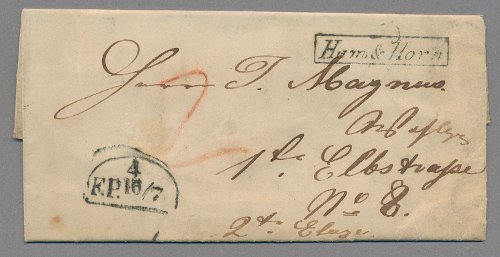 Ham & Horn
Herrn T. Magnus
1te Elbstraße
No 8.
2te Etage
4
F.P. 16/7